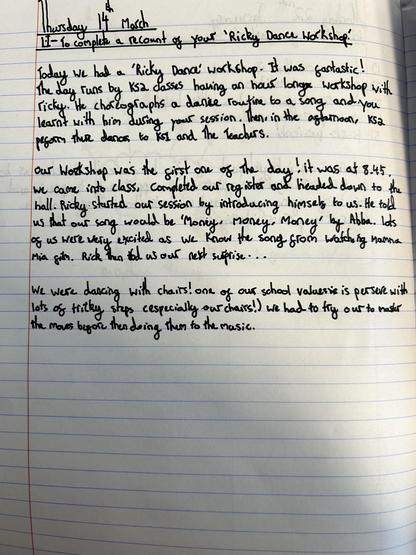 Thursday 14th March
LI- To complete a recount of your 'Ricky Dance Workshop'
Today we had a 'Ricky Dance' workshop. It was fantastic!
The day runs by KS2 classes having an hour longe workshop with
Ricky. He choreographs a dance routine to a song and you
learnt with him during your session. Then, in the afternoon, KS2
peform their dances to KS1 and the Teachers.
Our Workshop was the first one of the day! it was at 8.45.
we came into class, completed our register and headed down to the
hall. Ricky started our session by introducing himself to us. He told
us that our song would be 'Money, Money, Money' by Abba. lots
of us were very excited as we know the song from watching mamma
Mia film. Rick then told us our next suprise...
We were dancing with chairs! one of our school values is persevere with
lots of tricky steps (especially our chairs!) we had to try our to master
the moves before then doing them to the music.